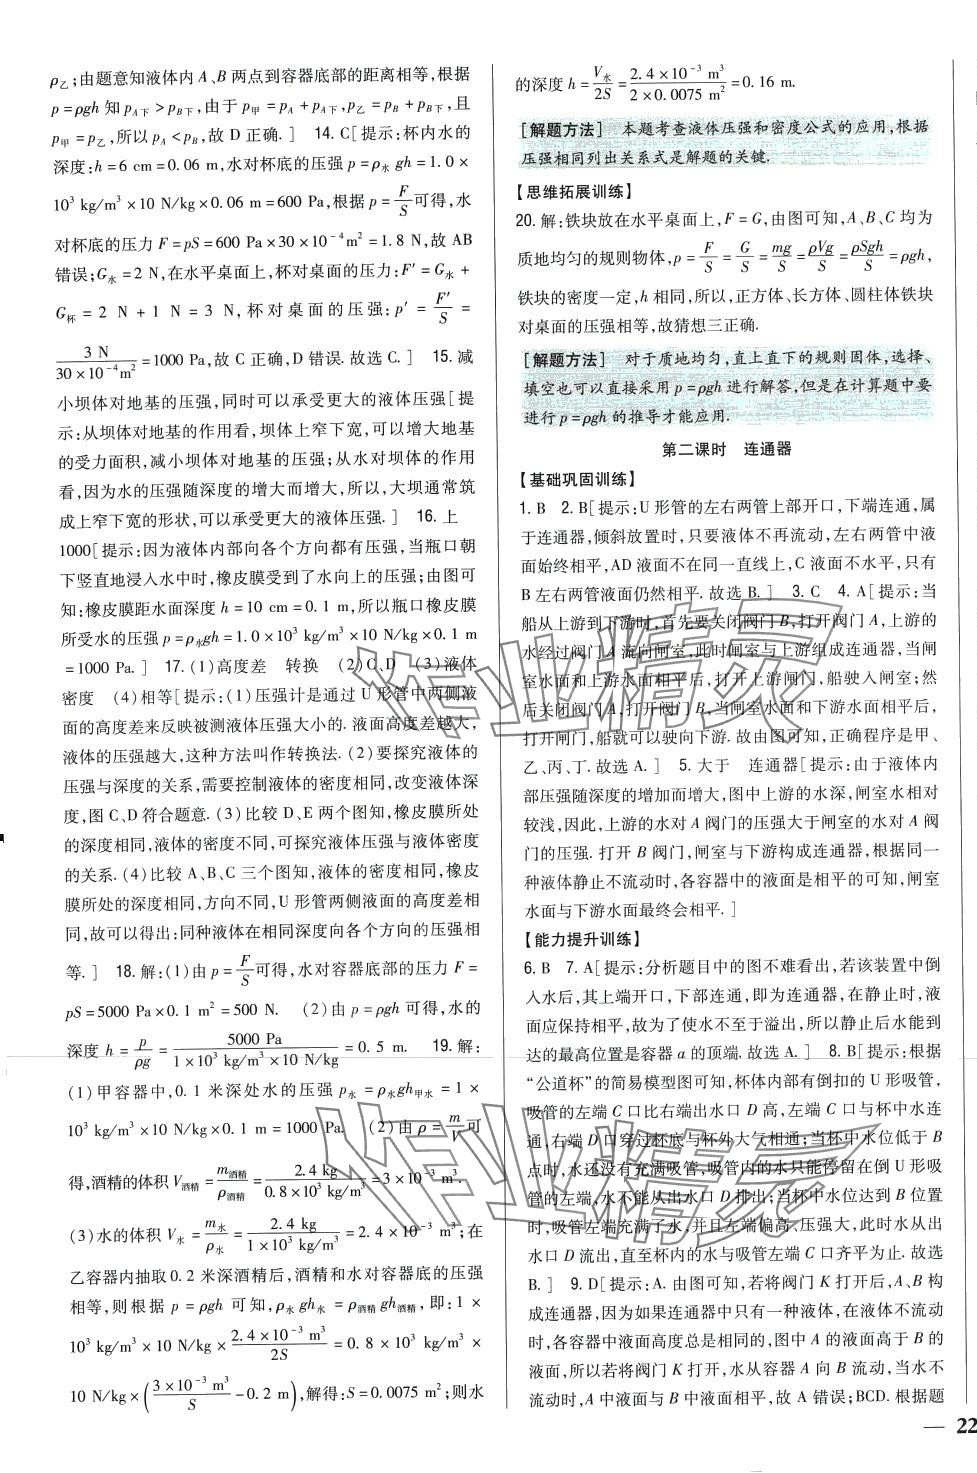 ρ乙;由题意知液体内 A、B 两点到容器底部的距离相等,根据
p=ρgh 知 pA下>pB下,由于 p甲=pA+pA下,p乙=pB+pB下,且
p甲=p乙,所以 pA<pB,故 D 正确.] 14. C[提示:杯内水的
深度:h=6 cm=0.06 m,水对杯底的压强 p=ρ水gh=1.0×
10³ kg/m³×10 N/kg×0.06 m=600 Pa,根据 p=F/S可得,水
对杯底的压力 F=pS=600 Pa×30×10⁻⁴m²=1.8 N,故 AB
错误;G水=2 N,在水平桌面上,杯对桌面的压力:F′=G水+
G杯=2 N+1 N=3 N,杯对桌面的压强:p′=F′/S=
3 N/(30×10⁻⁴m²)=1000 Pa,故 C 正确,D 错误.故选 C.] 15. 减
小坝体对地基的压强,同时可以承受更大的液体压强[提
示:从坝体对地基的作用看,坝体上窄下宽,可以增大地基
的受力面积,减小坝体对地基的压强;从水对坝体的作用
看,因为水的压强随深度的增大而增大,所以,大坝通常筑
成上窄下宽的形状,可以承受更大的液体压强.] 16. 上
1000[提示:因为液体内部向各个方向都有压强,当瓶口朝
下竖直地浸入水中时,橡皮膜受到了水向上的压强;由图可
知:橡皮膜距水面深度 h=10 cm=0.1 m,所以瓶口橡皮膜
所受水的压强 p=ρ水gh=1.0×10³ kg/m³×10 N/kg×0.1 m
=1000 Pa.] 17. (1)高度差 转换 (2)C、D (3)液体
密度 (4)相等[提示:(1)压强计是通过 U 形管中两侧液
面的高度差来反映被测液体压强大小的.液面高度差越大,
液体的压强越大,这种方法叫作转换法.(2)要探究液体的
压强与深度的关系,需要控制液体的密度相同,改变液体深
度,图 C、D 符合题意.(3)比较 D、E 两个图知,橡皮膜所处
的深度相同,液体的密度不同,可探究液体压强与液体密度
的关系.(4)比较 A、B、C 三个图知,液体的密度相同,橡皮
膜所处的深度相同,方向不同,U 形管两侧液面的高度差相
同,故可以得出:同种液体在相同深度向各个方向的压强相
等.] 18. 解:(1)由 p=F/S可得,水对容器底部的压力 F=
pS=5000 Pa×0.1 m²=500 N. (2)由 p=ρgh 可得,水的
深度 h=p/ρg=5000 Pa/(1×10³ kg/m³×10 N/kg)=0.5 m. 19. 解:
(1)甲容器中,0.1 米深处水的压强 p水=ρ水gh甲水=1×
10³ kg/m³×10 N/kg×0.1 m=1000 Pa. (2)由 ρ=m/V可
得,酒精的体积 V酒精=m酒精/ρ酒精=2.4 kg/(0.8×10³ kg/m³)=3×10⁻³ m³.
(3)水的体积 V水=m水/ρ水=2.4 kg/(1×10³ kg/m³)=2.4×10⁻³ m³;在
乙容器内抽取 0.2 米深酒精后,酒精和水对容器底的压强
相等,则根据 p=ρgh 可知,ρ水gh水=ρ酒精gh酒精,即:1×
10³ kg/m³×10 N/kg×(2.4×10⁻³ m³)/2S=0.8×10³ kg/m³×
10 N/kg×((3×10⁻³ m³)/S-0.2 m),解得:S=0.0075 m²;则水
的深度 h=V水/2S=(2.4×10⁻³ m³)/(2×0.0075 m²)=0.16 m.
[解题方法] 本题考查液体压强和密度公式的应用,根据
压强相同列出关系式是解题的关键.
【思维拓展训练】
20. 解:铁块放在水平桌面上,F=G,由图可知,A、B、C 均为
质地均匀的规则物体,p=F/S=G/S=mg/S=ρVg/S=ρSgh/S=ρgh,
铁块的密度一定,h 相同,所以,正方体、长方体、圆柱体铁块
对桌面的压强相等,故猜想三正确.
[解题方法] 对于质地均匀,直上直下的规则固体,选择、
填空也可以直接采用 p=ρgh 进行解答,但是在计算题中要
进行 p=ρgh 的推导才能应用.
第二课时 连通器
【基础巩固训练】
1. B 2. B[提示:U 形管的左右两管上部开口,下端连通,属
于连通器,倾斜放置时,只要液体不再流动,左右两管中液
面始终相平,AD 液面不在一直线上,C 液面不水平,只有
B 左右两管液面仍然相平.故选 B.] 3. C 4. A[提示:当
船从上游到下游时,首先要关闭阀门 B,打开阀门 A,上游的
水经过阀门 A 流向闸室,此时闸室与上游组成连通器,当闸
室水面和上游水面相平后,打开上游闸门,船驶入闸室;然
后关闭阀门 A,打开阀门 B,当闸室水面和下游水面相平后,
打开闸门,船就可以驶向下游.故由图可知,正确程序是甲、
乙、丙、丁.故选 A.] 5. 大于 连通器[提示:由于液体内
部压强随深度的增加而增大,图中上游的水深,闸室水相对
较浅,因此,上游的水对 A 阀门的压强大于闸室的水对 A 阀
门的压强.打开 B 阀门,闸室与下游构成连通器,根据同一
种液体静止不流动时,各容器中的液面是相平的可知,闸室
水面与下游水面最终会相平.]
【能力提升训练】
6. B 7. A[提示:分析题目中的图不难看出,若该装置中倒
入水后,其上端开口,下部连通,即为连通器,在静止时,液
面应保持相平,故为了使水不至于溢出,所以静止后水能到
达的最高位置是容器 a 的顶端.故选 A.] 8. B[提示:根据
“公道杯”的简易模型图可知,杯体内部有倒扣的 U 形吸管,
吸管的左端 C 口比右端出水口 D 高,左端 C 口与杯中水连
通,右端 D 口穿过杯底与杯外大气相通;当杯中水位低于 B
点时,水还没有充满吸管,吸管内的水只能停留在倒 U 形吸
管的左端,水不能从出水口 D 排出;当杯中水位达到 B 位置
时,吸管左端充满了水,并且左端偏高,压强大,此时水从出
水口 D 流出,直至杯内的水与吸管左端 C 口齐平为止.故选
B.] 9. D[提示:A. 由图可知,若将阀门 K 打开后,A、B 构
成连通器,因为如果连通器中只有一种液体,在液体不流动
时,各容器中液面高度总是相同的,图中 A 的液面高于 B 的
液面,所以若将阀门 K 打开,水从容器 A 向 B 流动,当水不
流动时,A 中液面与 B 中液面相平,故 A 错误;BCD. 根据题
— 22
作业精灵
作业精灵